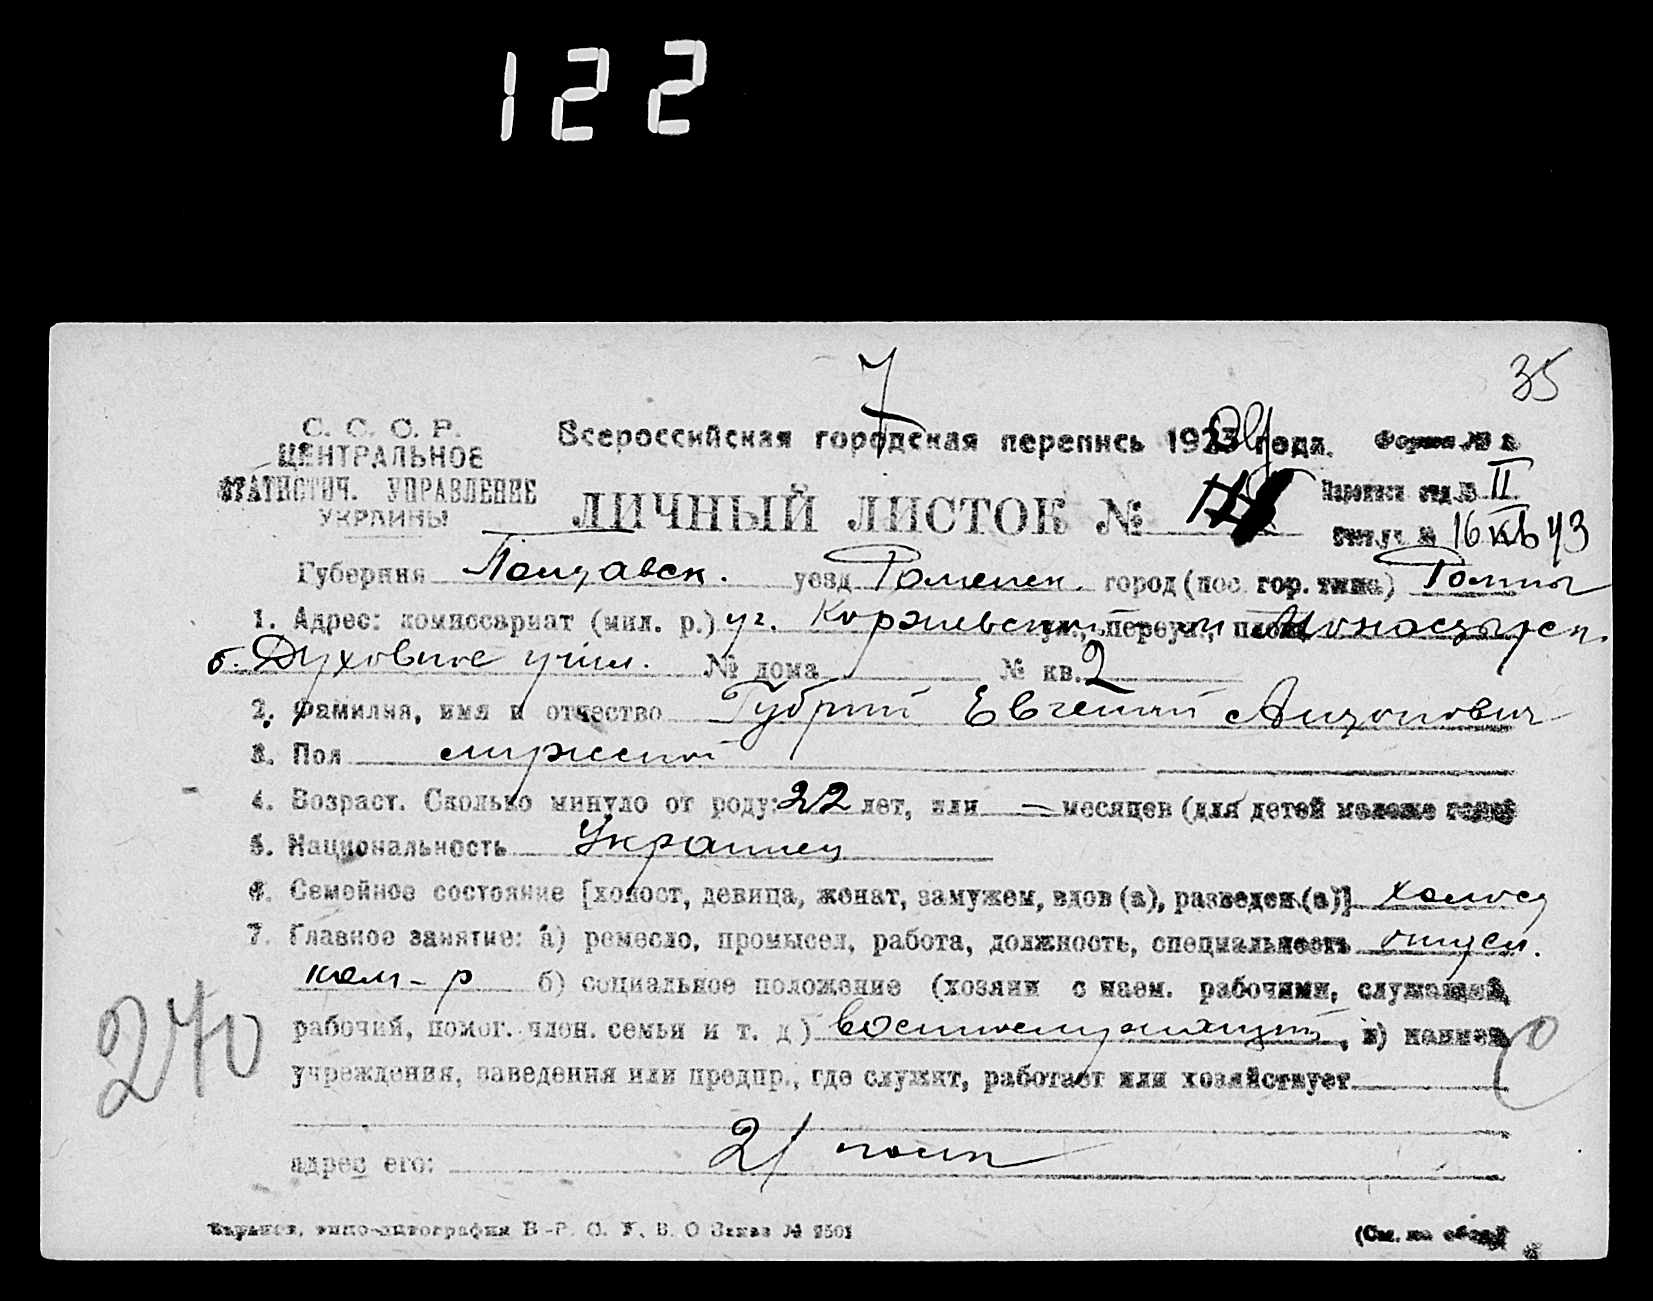 122
7
35
С. С. С. Р.
ЦЕНТРАЛЬНОЕ
СТАТИСТИЧ. УПРАВЛЕНИЕ
УКРАИНЫ
Всероссийская городская перепись 1923 года. Форма № 2
ЛИЧНЫЙ ЛИСТОК №
Переписн отд. № II
Счет. уч. № 16 кв 43
Губерния Полтавск. уезд Роменск. город (пос. гор. типа) Ромны
1. Адрес: комиссариат (мил. р.) уг. Коржевской ул., переул., площ. и Монастырск.
б. Духовное учил. № дома № кв. 2
2. Фамилия, имя и отчество Губрий Евгений Антонович
3. Пол мужской
4. Возраст. Сколько минуло от роду: 22 лет, или — месяцев (для детей моложе года)
5. Национальность Украинец
6. Семейное состояние [холост, девица, женат, замужем, вдов (а), разведен (а)] холост
7. Главное занятие: а) ремесло, промысел, работа, должность, специальность
ком-р б) социальное положение (хозяин с наем. рабочими, служащий,
рабочий, помог. член. семьи и т. д.) военнослужащий, в) наимен.
учреждения, заведения или предпр., где служит, работает или хозяйствует
адрес его: 21 полк
270
Харьков, типо-литография В.-Р. С. У. В. О Заказ № 2501
(См. на обор.)